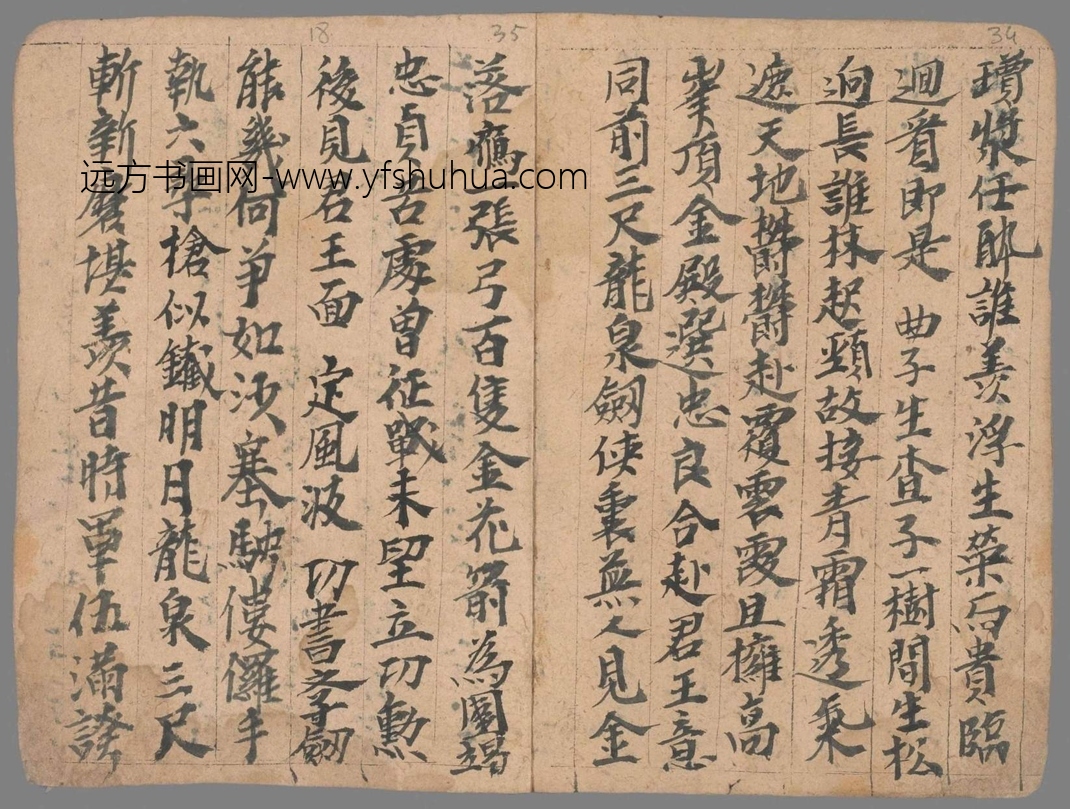 34
瓊漿任𨠑誰羨浮生榮而貴臨
迴看即是 曲子生查子一樹間生松
迥長誰抹起頭故接青霄透氣
遮天地鬱鬱赴覆雲霞且擁高
峯頂金殿選忠良合赴君王意
同前三尺龍泉劍俠裏無人見金
35
落鴈一張弓百隻金花箭為國竭
忠貞苦處曾征戰未望立功勳
後見君王面 定風波 功書學劍
能幾何爭如沙塞騁僂儸手
執六尋槍似鐵明月龍泉三尺
斬新磨堪羨昔時軍伍滿誇
18
远方书画网-www.yfshuhua.com